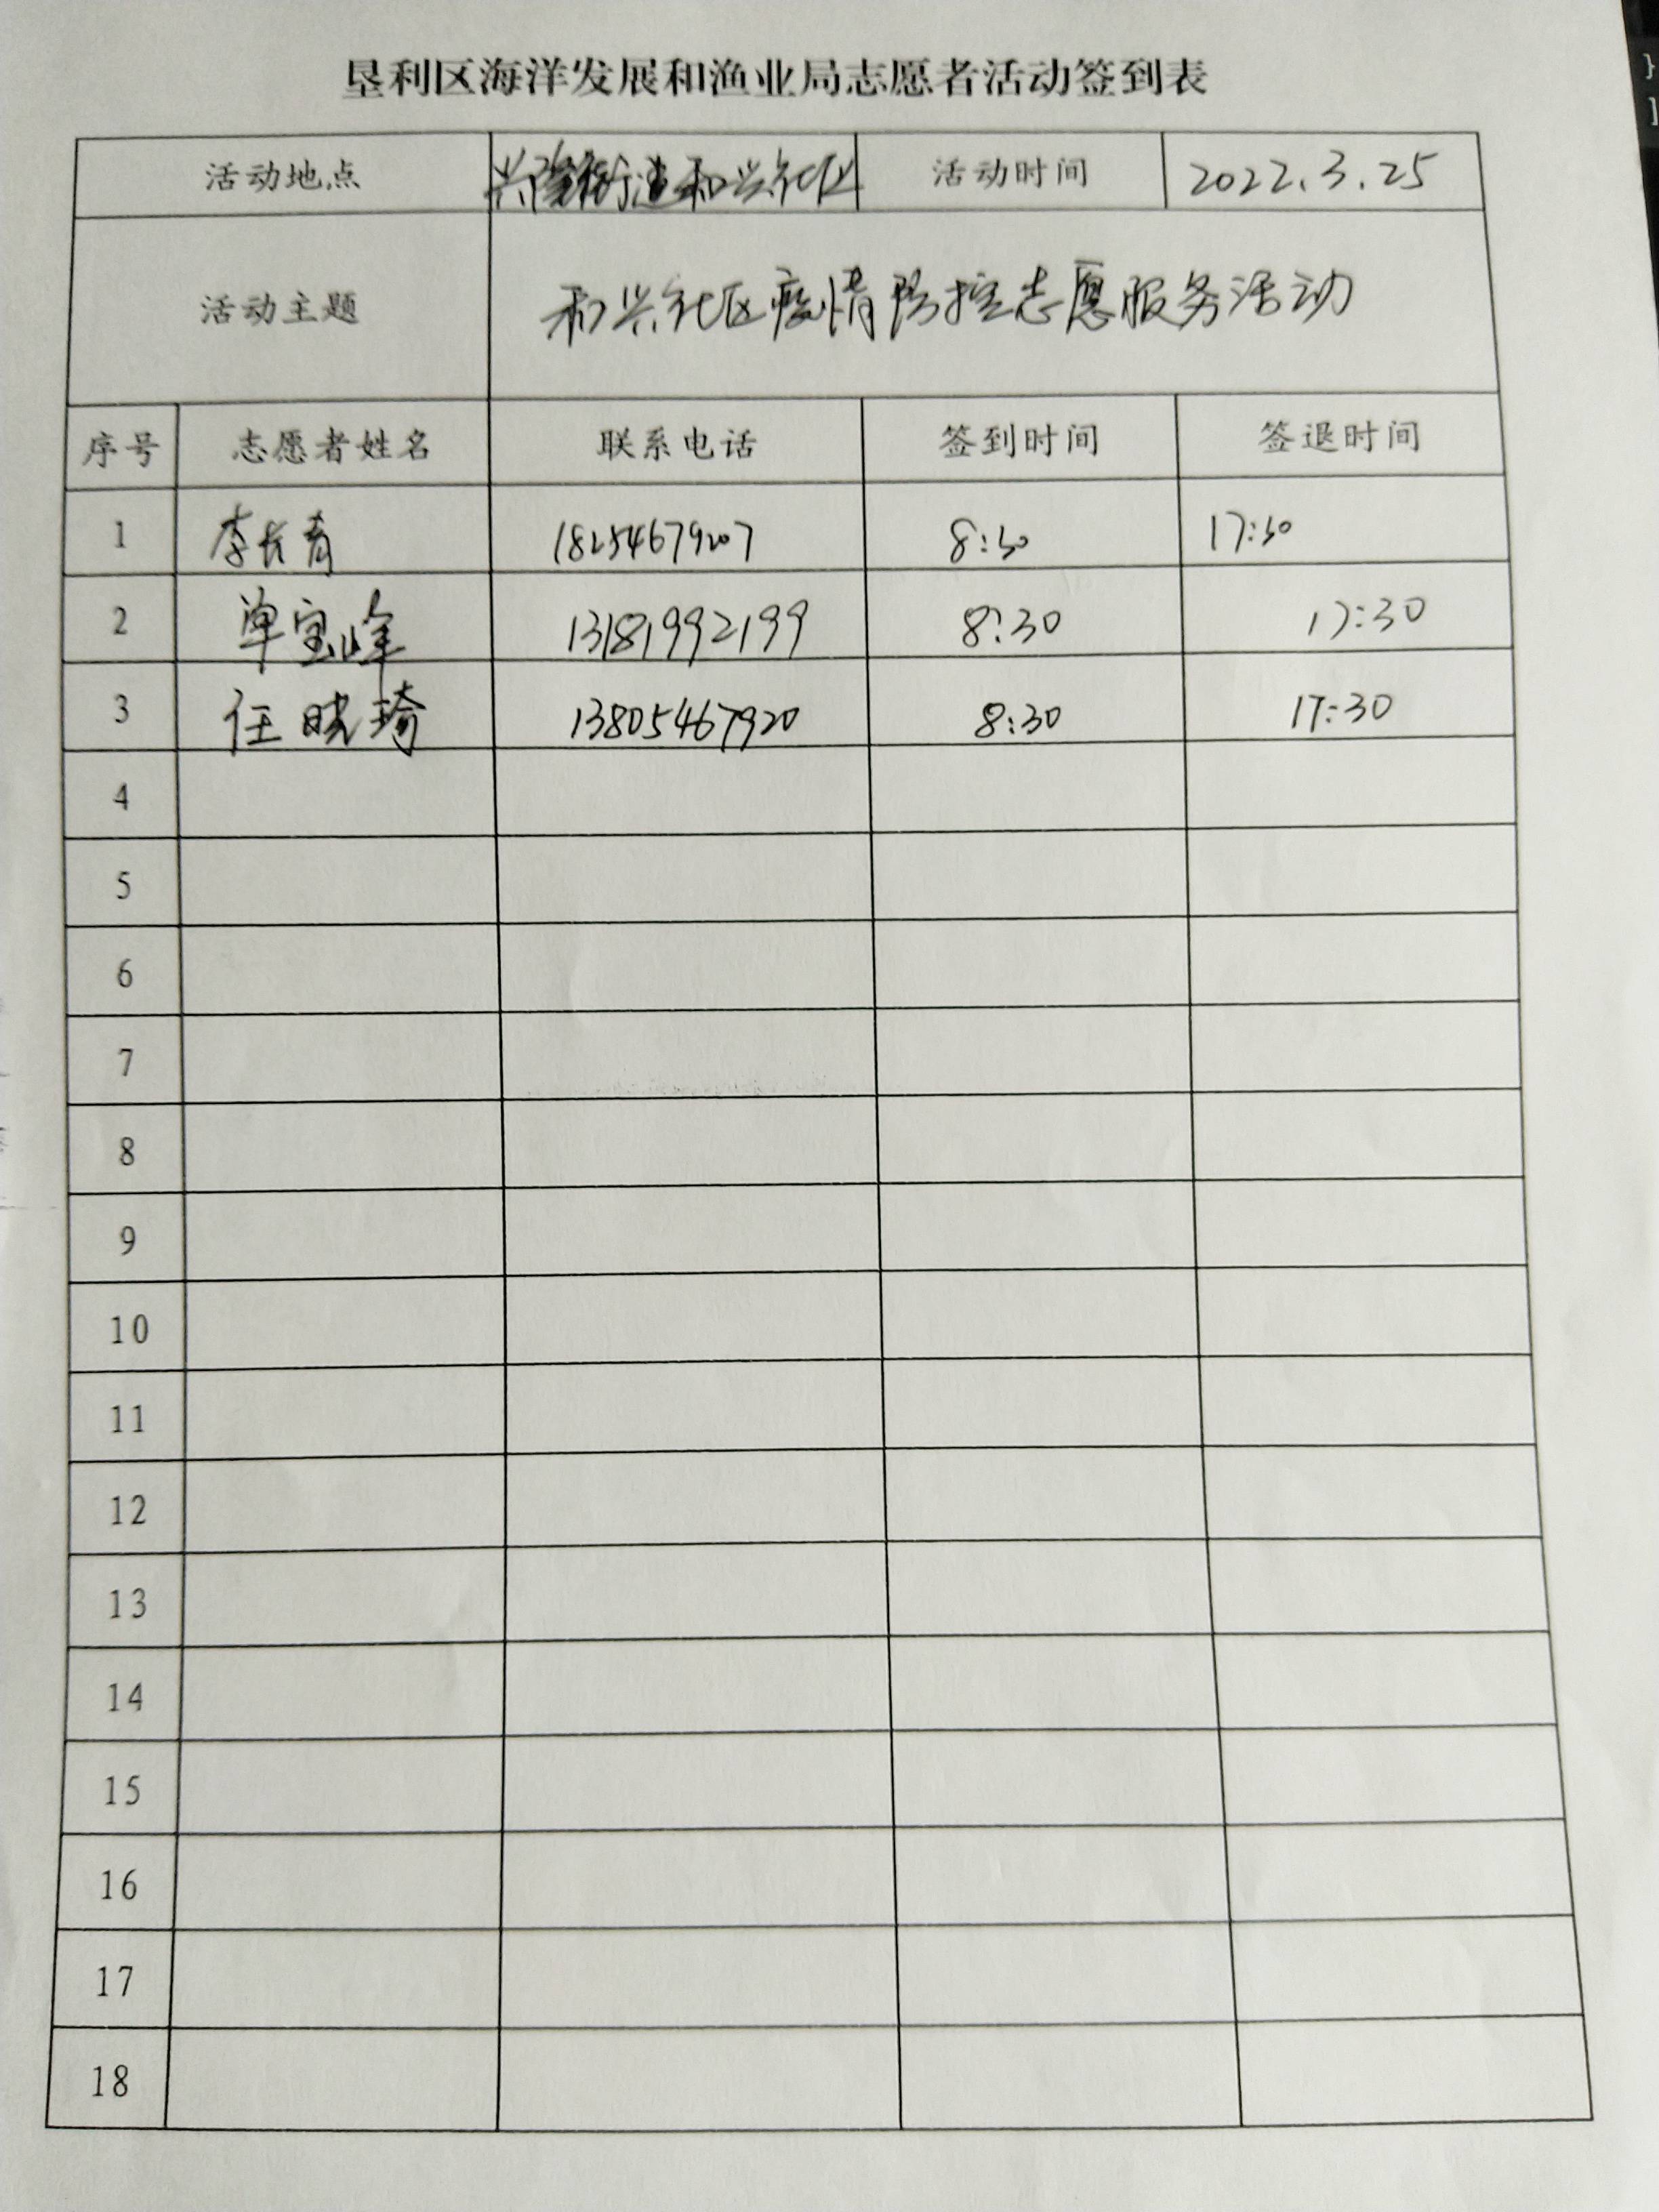 垦利区海洋发展和渔业局志愿者活动签到表
活动地点 兴隆街道和兴社区 活动时间 2022.3.25
活动主题 和兴社区疫情防控志愿服务活动
序号 志愿者姓名 联系电话 签到时间 签退时间
1 李长青 18254679207 8:30 17:30
2 单宝峰 13181992199 8:30 17:30
3 任晓琦 13805467920 8:30 17:30
4
5
6
7
8
9
10
11
12
13
14
15
16
17
18